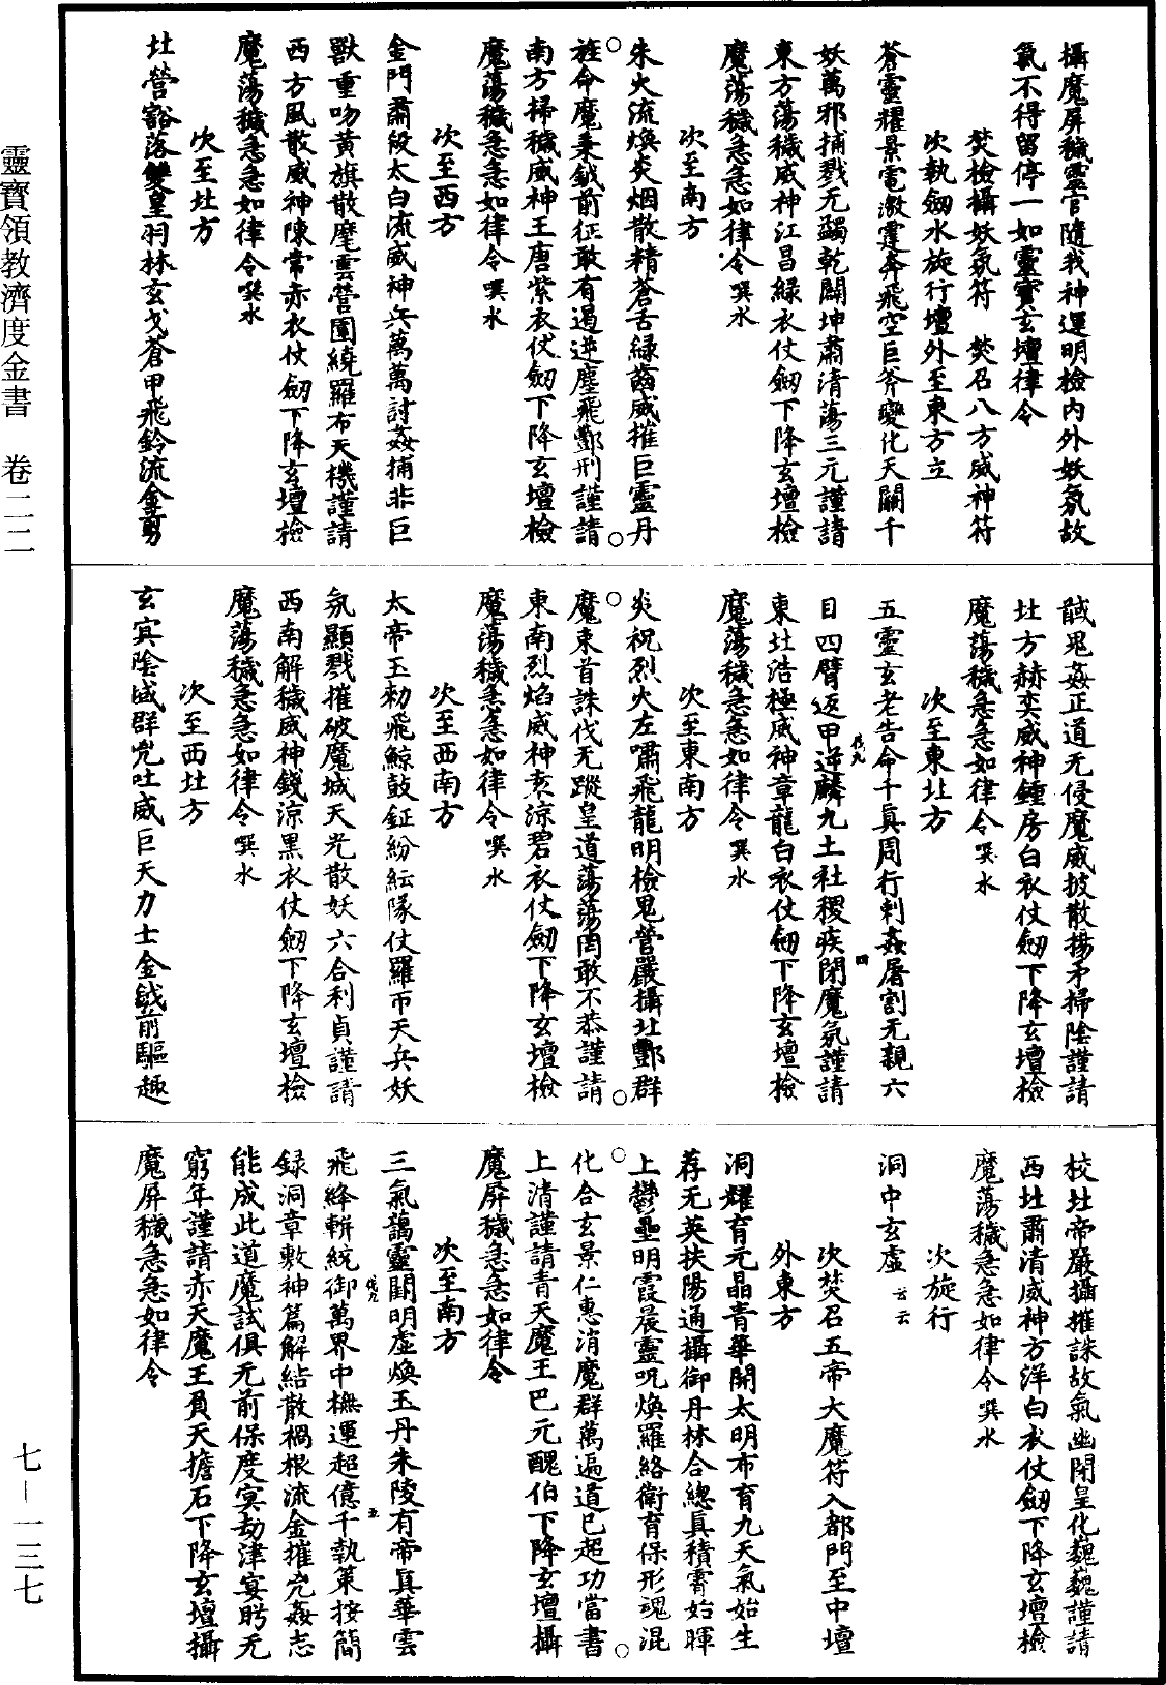 攝魔屏穢靈官隨我神運明檢內外妖氛故
氣不得留停一如靈寶玄壇律令
焚檢攝妖氛符　焚召八方威神符
次執劔水旋行壇外至東方立
蒼靈耀景電激霆奔飛空巨斧變化天關千
妖萬邪捕戮无蠲乾闢坤肅清蕩三元謹請
東方蕩穢威神江昌綠衣仗劔下降玄壇檢
魔蕩穢急急如律令噀水
次至南方
朱火流煥炎烟散精蒼舌綠齒威摧巨靈丹
旌命魔秉鉞前征敢有遏逆塵飛酆刑謹請
南方掃穢威神王唐紫衣仗劔下降玄壇檢
魔蕩穢急急如律令噀水
次至西方
金門肅殺太白流威神兵萬萬討姦捕非巨
獸重吻黃旗散麾雲營圍繞羅布天機謹請
西方風散威神陳常赤衣仗劔下降玄壇檢
魔蕩穢急急如律令噀水
次至北方
北營豁落雙皇羽林玄戈蒼甲飛鈴流金剪
馘鬼姦正道无侵魔威披散揚矛掃陰謹請
北方赫奕威神鍾房白衣仗劔下降玄壇檢
魔蕩穢急急如律令噀水
次至東北方
五靈玄老告命千真周行剌姦屠割无親六
目四臂返甲逆麟九土社稷疾閉魔氛謹請
東北浩極威神章龍白衣仗劔下降玄壇檢
魔蕩穢急急如律令噀水
次至東南方
炎祝烈火左嘯飛龍明檢鬼營嚴攝北酆群
魔束首誅伐无蹤皇道蕩蕩罔敢不恭謹請
東南烈焰威神炁涼碧衣仗劔下降玄壇檢
魔蕩穢急急如律令噀水
次至西南方
太帝玉勑飛鯨鼓鉦紛紜隊仗羅帀天兵妖
氛顯戮摧破魔城天光散妖六合利貞謹請
西南解穢威神錢涼黑衣仗劔下降玄壇檢
魔蕩穢急急如律令噀水
次至西北方
玄㝠陰盛群兇吐威巨天力士金鉞前驅趣
校北帝嚴攝摧誅故氣幽閉皇化巍巍謹請
西北肅清威神方洋白衣仗劔下降玄壇檢
魔蕩穢急急如律令噀水
次旋行
洞中玄虛云云
次焚召五帝大魔符入都門至中壇
外東方
洞耀育元晶青華開太明布育九天氣始生
荐无英扶陽通攝御丹林合總真積霄始暉
上鬱壘明霞晨靈呪煥羅絡衛育保形魂混
化合玄景仁惠消魔群萬遍道已超功當書
上清謹請青天魔王巴元醜伯下降玄壇攝
魔屏穢急急如律令
次至南方
三氣藹靈閏明虛煥玉丹朱陵有帝真華雲
飛絳輧統御萬界中櫵運超億千執策接簡
録洞章敷神篇解結散禍根流金摧兇姦志
能成此道魔試俱无前保度㝠劫津宴眄无
窮年謹請赤天魔王負天擔石下降玄壇攝
魔屏穢急急如律令
靈寶領教濟度金書　卷二二
七—一三七